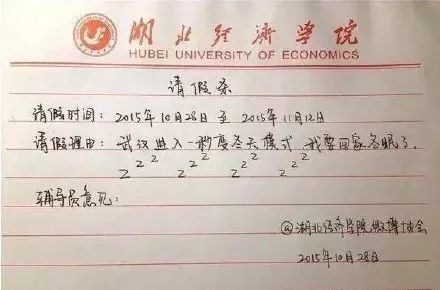 湖北经济学院
HUBEI UNIVERSITY OF ECONOMICS
请假条
请假时间：2015年10月28日 至 2015年11月12日
请假理由：武汉进入一秒变冬天模式，我要回家冬眠了.
zzz zzz zzz zzz
辅导员意见：
@湖北经济学院微博协会
2015年10月28日